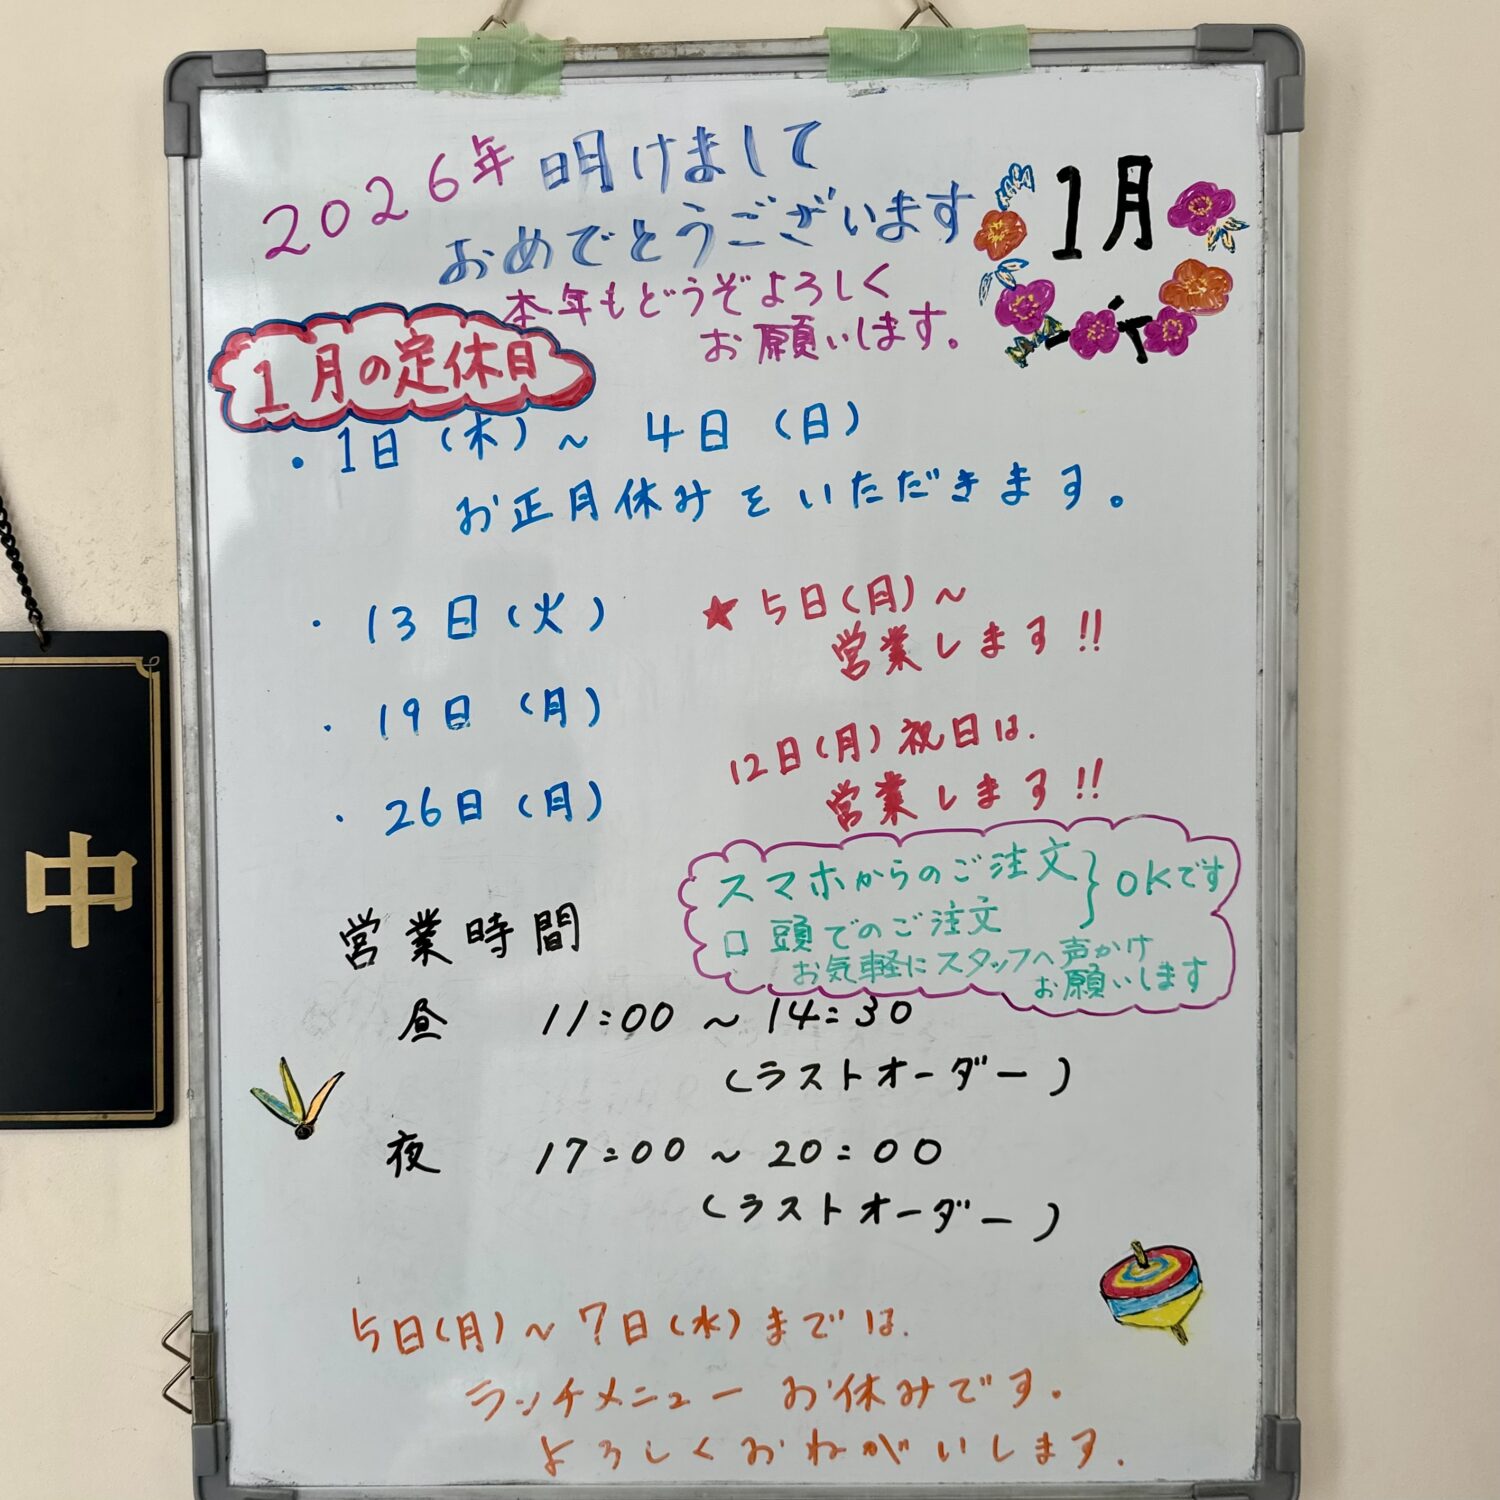 2026年 明けまして
おめでとうございます
本年もどうぞよろしく
お願いします。
1月
1月の定休日
・1日(木)～ 4日(日)
お正月休みをいただきます。
・13日(火)
・19日(月)
・26日(月)
★5日(月)～
営業します!!
12日(月)祝日は、
営業します!!
スマホからのご注文
口頭でのご注文
}OKです
お気軽にスタッフへ声かけ
お願いします
営業時間
昼 11:00 ～ 14:30
(ラストオーダー)
夜 17:00 ～ 20:00
(ラストオーダー)
5日(月)～7日(水)までは、
ランチメニューお休みです。
よろしくおねがいします。
中